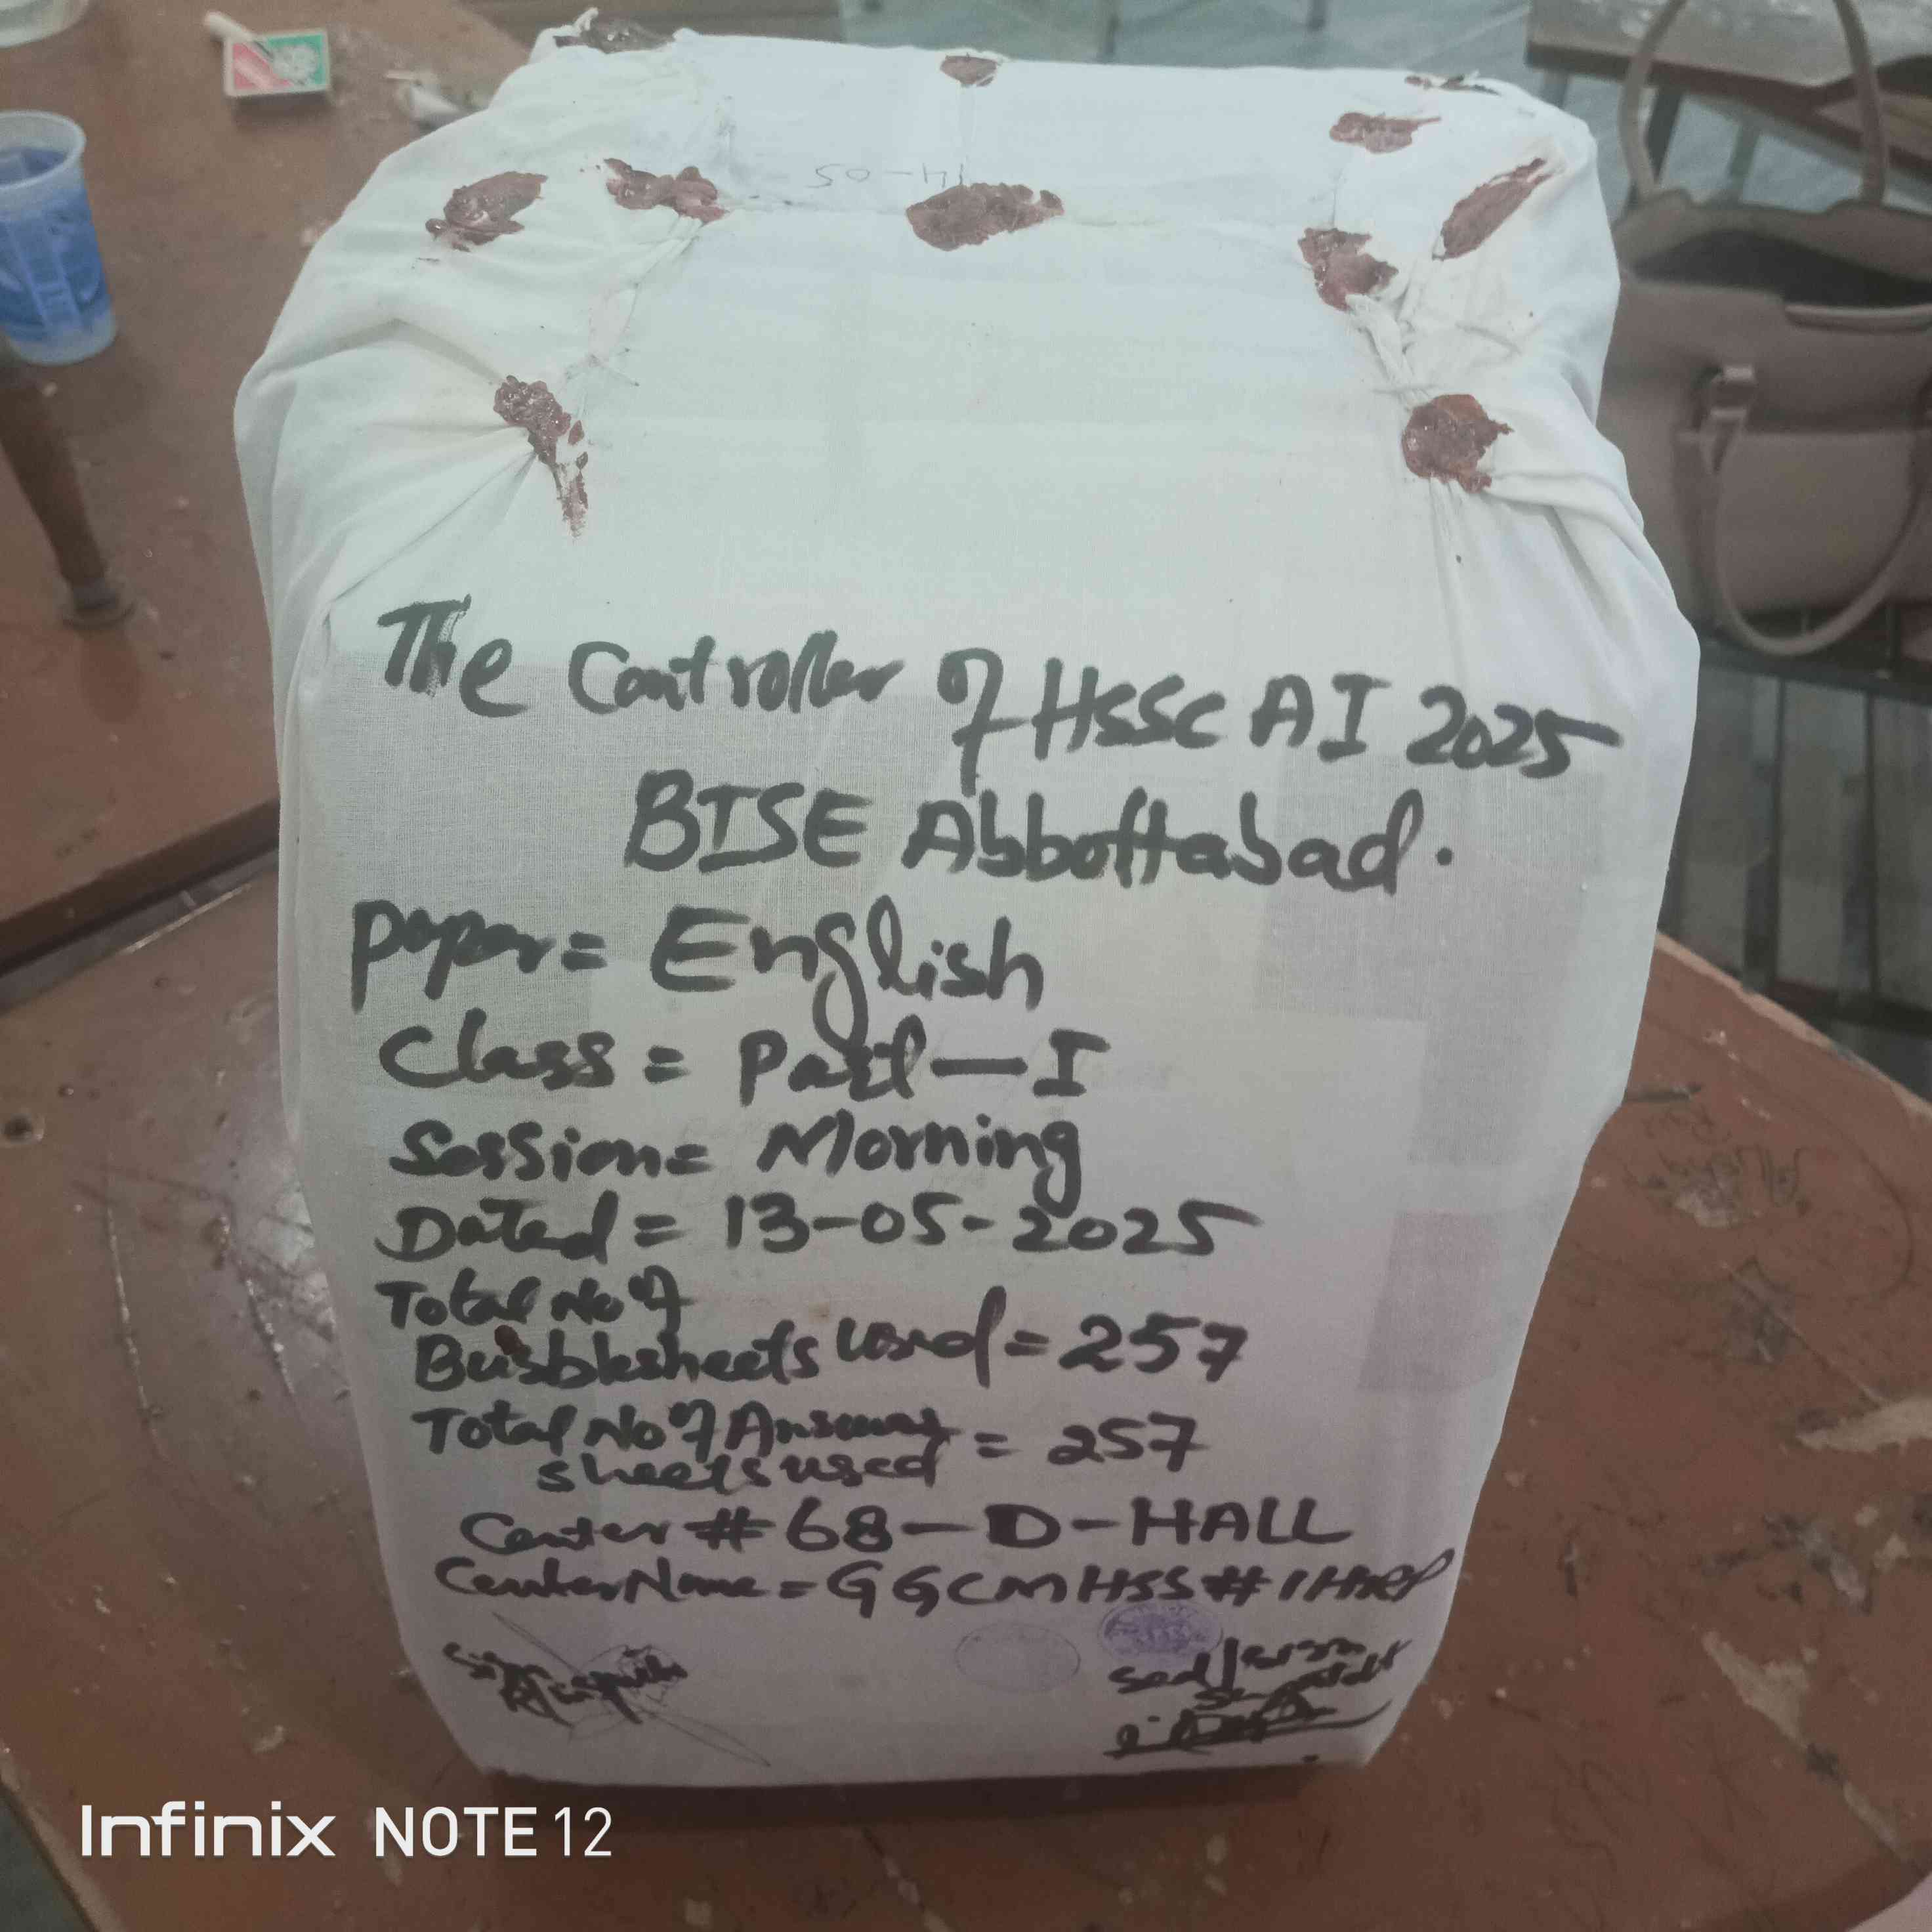 14-05
The Controller of HSSC AI 2025
BISE Abbottabad.
Paper = English
Class = Part-I
Session = Morning
Dated = 13-05-2025
Total No of
Bubblesheets used = 257
Total No of Answer = 257
sheets used
Center # 68-D-HALL
Center Name = GGCMHSS # 1 HRP
Infinix NOTE 12